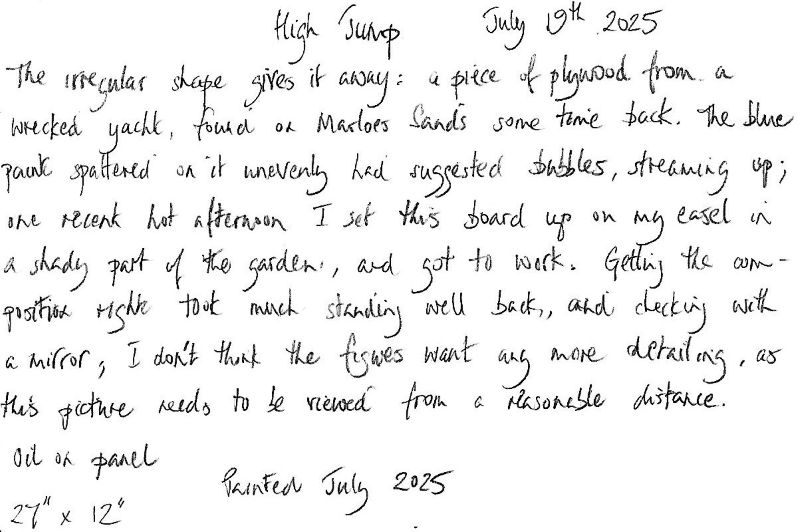 High Jump July 19th 2025
The irregular shape gives it away: a piece of plywood from a
wrecked yacht, found on Marloes Sands some time back. The blue
paint spattered on it unevenly had suggested bubbles, streaming up;
one recent hot afternoon I set this board up on my easel in
a shady part of the garden, and got to work. Getting the com-
position right took much standing well back, and checking with
a mirror; I don't think the figures want any more detailing, as
this picture needs to be viewed from a reasonable distance.
Oil on panel
Painted July 2025
27" x 12"